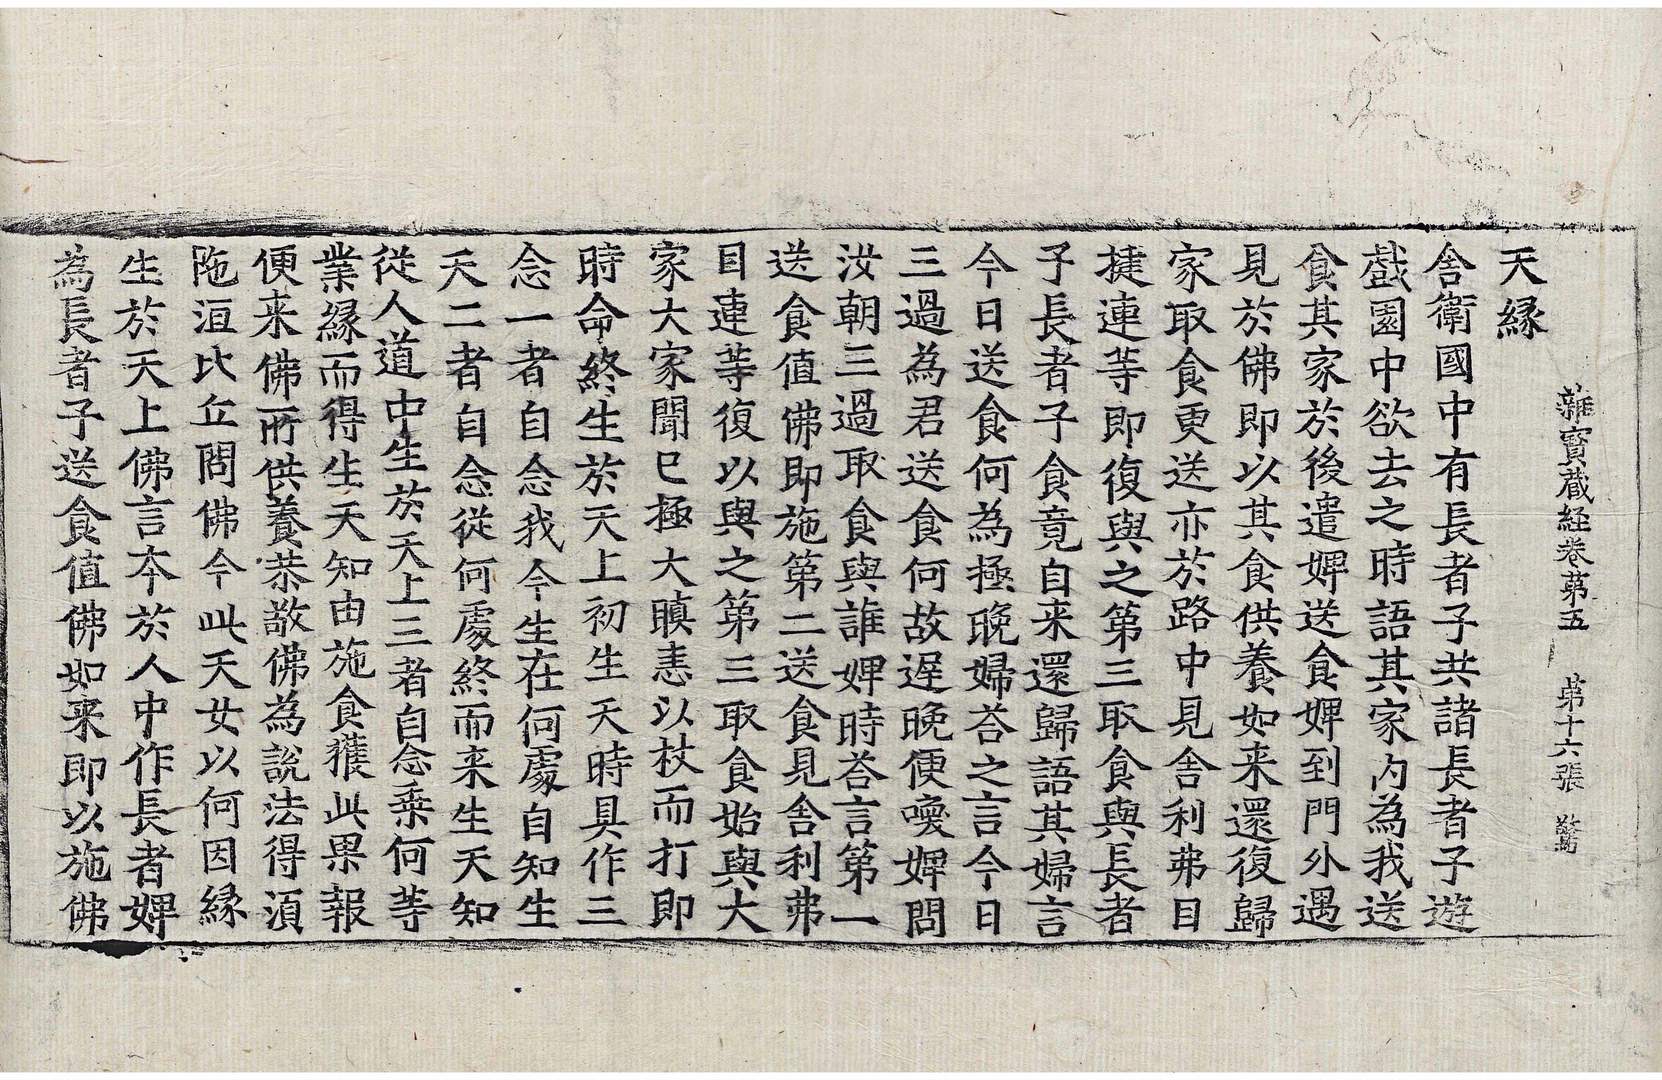 雜寶蔵経卷第五 第十六張 驚
天縁
舎衛國中有長者子共諸長者子遊
戲園中欲去之時語其家内為我送
食其家於後遣婢送食婢到門外遇
見於佛即以其食供養如来還復歸
家取食更送亦於路中見舎利弗目
揵連等即復與之第三取食與長者
子長者子食竟自来還歸語其婦言
今日送食何為極晚婦荅之言今日
三過為君送食何故遅晚便喚婢問
汝朝三過取食與誰婢時荅言第一
送食值佛即施第二送食見舎利弗
目連等復以與之第三取食始與大
家大家聞已極大瞋恚以杖而打即
時命終生於天上初生天時具作三
念一者自念我今生在何處自知生
天二者自念從何處終而来生天知
從人道中生於天上三者自念乗何等
業縁而得生天知由施食獲此果報
便来佛所供養恭敬佛為說法得湏
陁洹比丘問佛今此天女以何因縁
生於天上佛言夲於人中作長者婢
為長者子送食值佛如来即以施佛